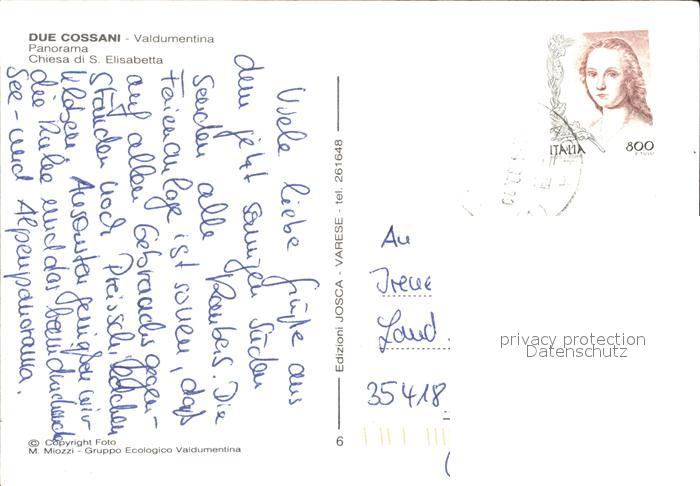 DUE COSSANI - Valdumentina
Panorama
Chiesa di S. Elisabetta
Viele liebe Grüße aus
dem jetzt sonnigen Süden
senden alle Die
Ferienanlage ist so neu, daß
auf allen Gebrauchsgegen-
ständen noch Preisschildchen
kleben. Ansonsten genießen wir
die Ruhe und das beeindruckende
See- und Alpenpanorama.
© Copyright Foto
M. Miozzi - Gruppo Ecologico Valdumentina
Edizioni JOSCA - VARESE - tel. 261648
6
ITALIA 800
An
Irene
Land
35418
privacy protection
Datenschutz